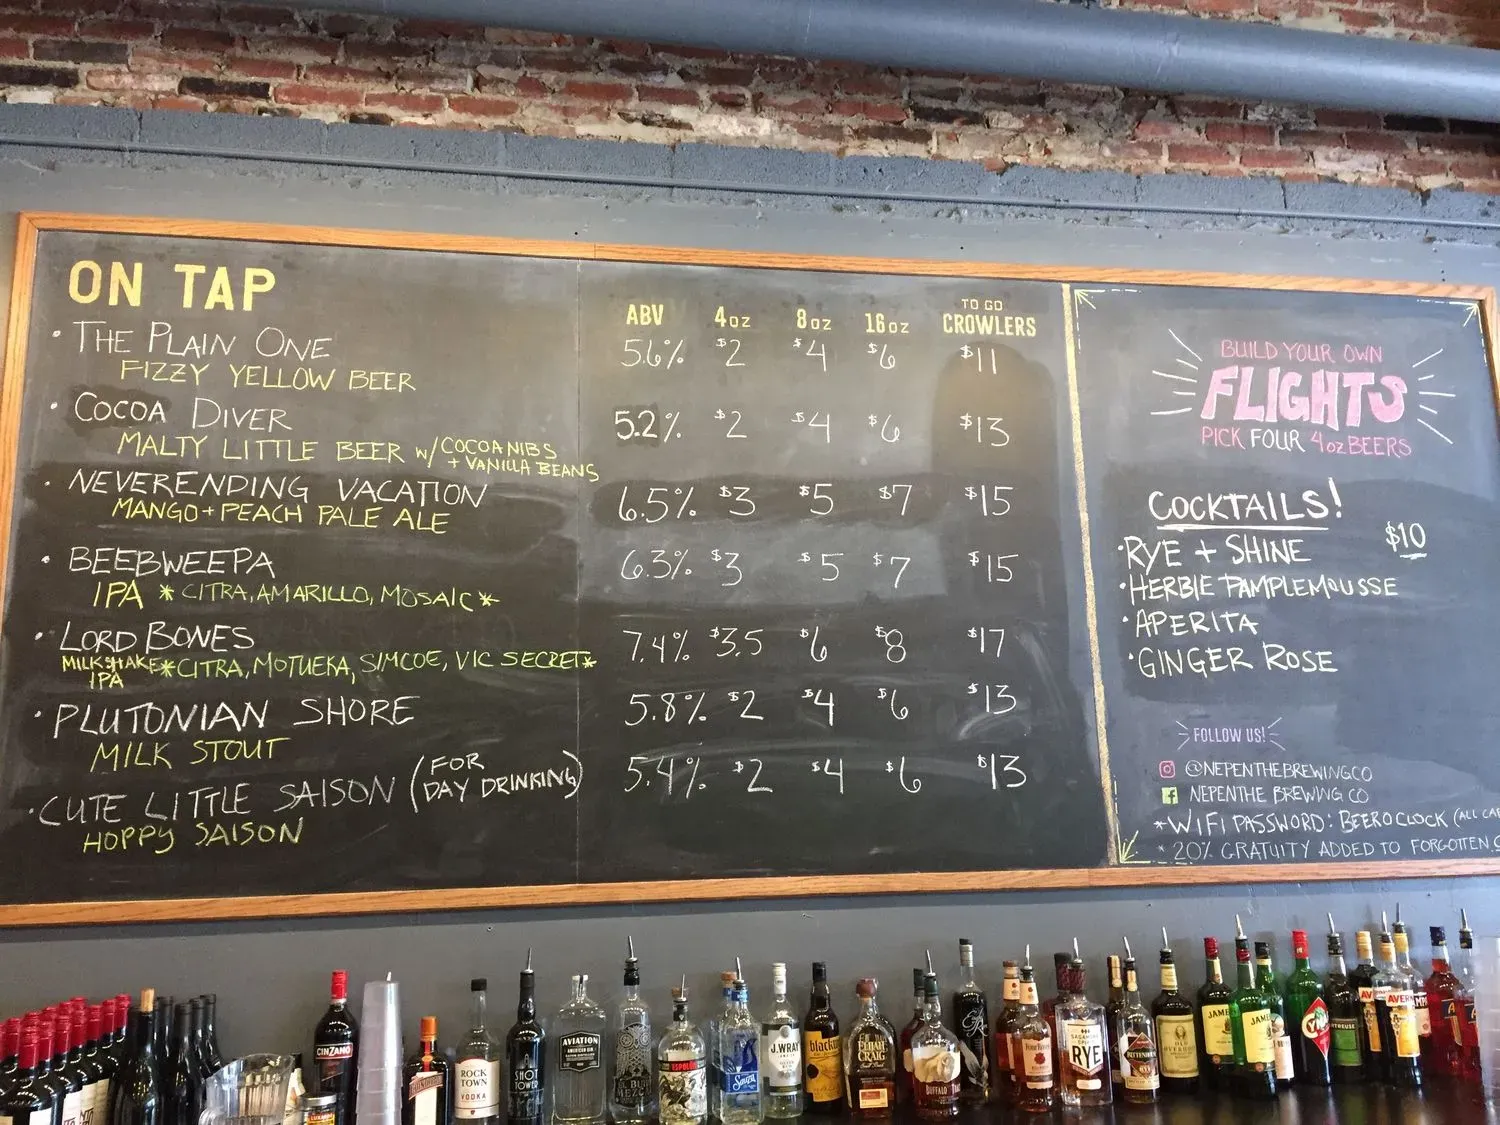 ON TAP
ABV 4oz 8oz 16oz TO GO CROWLERS
• THE PLAIN ONE 5.6% $2 $4 $6 $11
FIZZY YELLOW BEER
• COCOA DIVER 5.2% $2 $4 $6 $13
MALTY LITTLE BEER w/ COCOA NIBS
+ VANILLA BEANS
• NEVERENDING VACATION 6.5% $3 $5 $7 $15
MANGO + PEACH PALE ALE
• BEEBWEEPA 6.3% $3 $5 $7 $15
IPA * CITRA, AMARILLO, MOSAIC *
• LORD BONES 7.4% $3.5 $6 $8 $17
MILKSHAKE IPA * CITRA, MOTUEKA, SIMCOE, VIC SECRET *
• PLUTONIAN SHORE 5.8% $2 $4 $6 $13
MILK STOUT
• CUTE LITTLE SAISON (FOR DAY DRINKING) 5.4% $2 $4 $6 $13
HOPPY SAISON
BUILD YOUR OWN
FLIGHTS
PICK FOUR 4oz BEERS
COCKTAILS!
$10
• RYE + SHINE
• HERBIE PAMPLEMOUSSE
• APERITA
• GINGER ROSE
FOLLOW US!
@NEPENTHEBREWINGCO
NEPENTHE BREWING CO
* WIFI PASSWORD: BEEROCLOCK (ALL
* 20% GRATUITY ADDED TO FORGOTTEN
CINZANO
ROCK TOWN VODKA
SHOT TOWER
AVIATION
ESPOLON
Sauza
J.WRAY
PELHAM CRAIG
BUFFALO
RYE
RITTENHOUSE
OLD OVERHOLT
JAME
JAME
AVERN